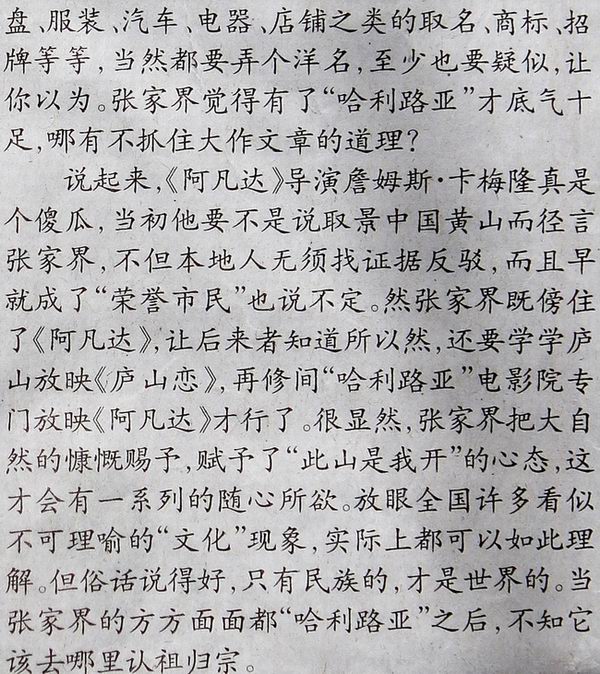 盘、服装、汽车、电器、店铺之类的取名、商标、招
牌等等，当然都要弄个洋名，至少也要疑似，让
你以为。张家界觉得有了“哈利路亚”才底气十
足，哪有不抓住大作文章的道理？
说起来，《阿凡达》导演詹姆斯·卡梅隆真是
个傻瓜，当初他要不是说取景中国黄山而径言
张家界，不但本地人无须找证据反驳，而且早
就成了“荣誉市民”也说不定。然张家界既傍住
了《阿凡达》，让后来者知道所以然，还要学学庐
山放映《庐山恋》，再修间“哈利路亚”电影院专
门放映《阿凡达》才行了。很显然，张家界把大自
然的慷慨赐予，赋予了“此山是我开”的心态，这
才会有一系列的随心所欲。放眼全国许多看似
不可理喻的“文化”现象，实际上都可以如此理
解。但俗话说得好，只有民族的，才是世界的。当
张家界的方方面面都“哈利路亚”之后，不知它
该去哪里认祖归宗。